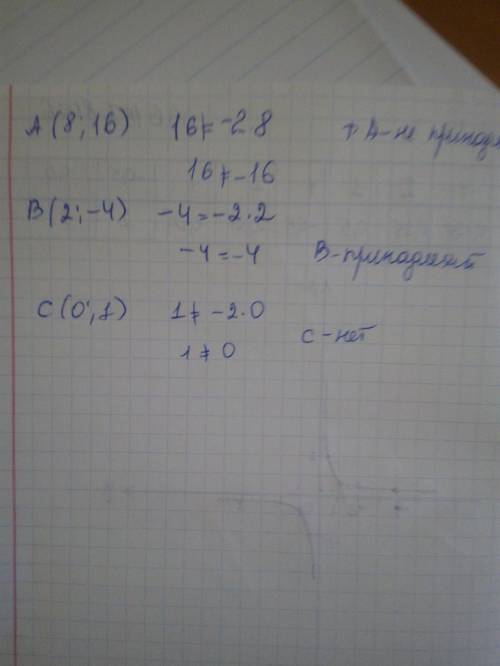 A (8; 16) 16 ≠ -2·8 т. А-не принадл
16 ≠ -16
B (2; -4) -4 = -2·2
-4 = -4 В-принадлежит
C (0; 1) 1 ≠ -2·0
1 ≠ 0 С-нет